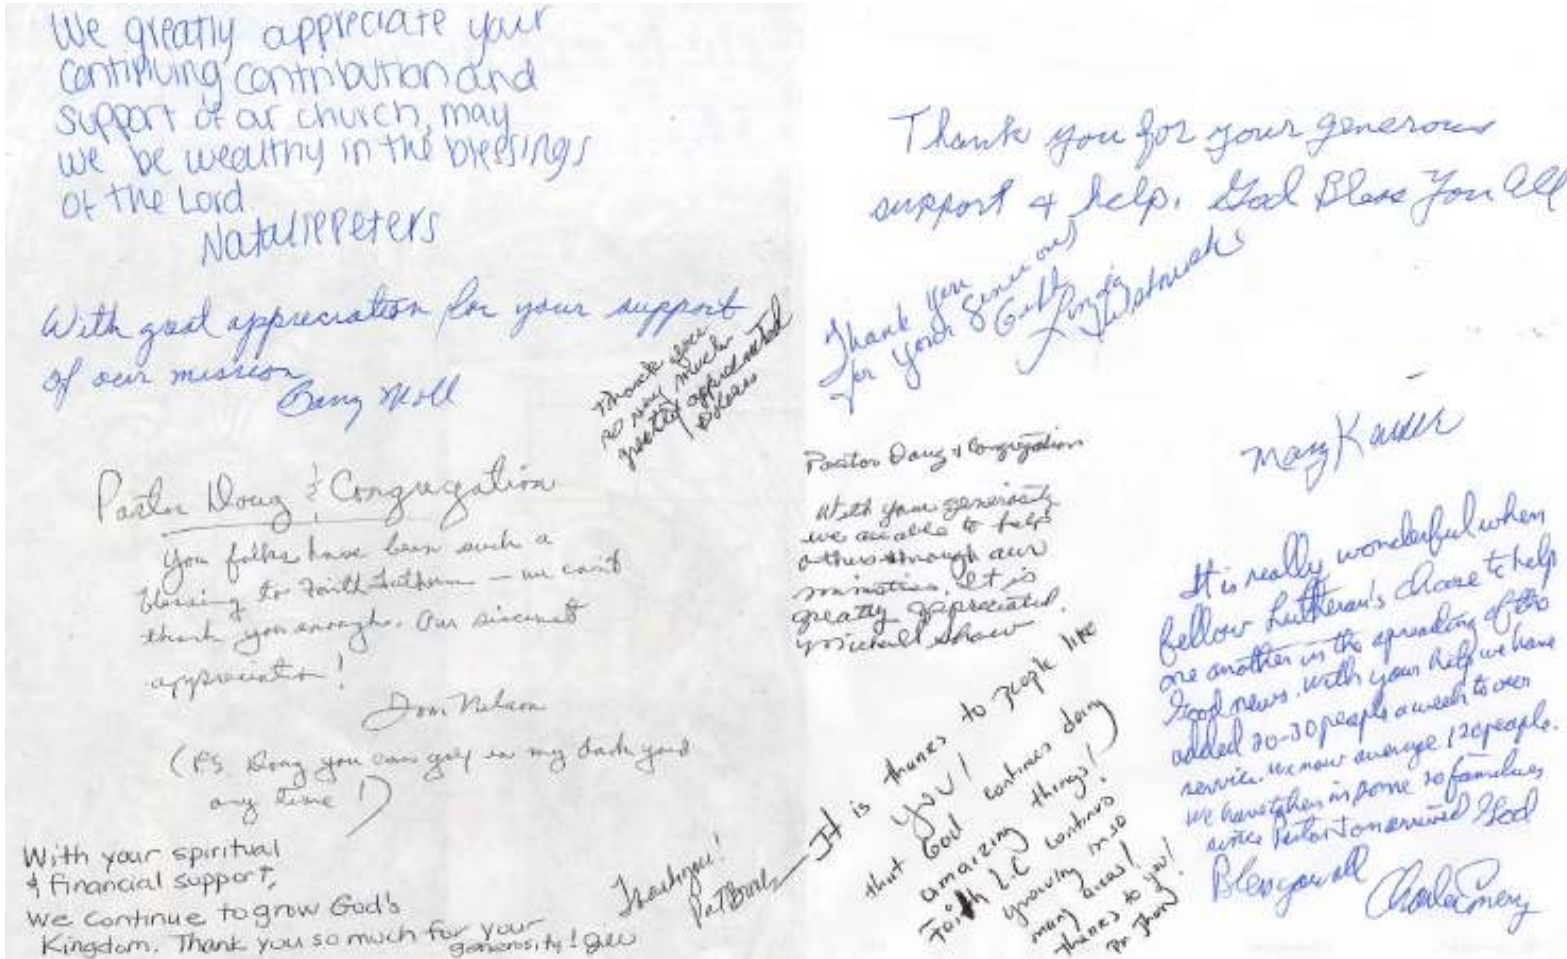 We greatly appreciate your
continuing contribution and
support of our church, may
we be wealthy in the blessings
of the Lord.
Natalie Peters
With great appreciation for your support
of our mission
Moll
Thank you
so very much
greatly appreciated
Dolores
Pastor Doug & Congregation
You folks have been such a
blessing to Faith Lutheran — we can't
thank you enough. Our sincerest
appreciation!
Nelson
(PS Doug you can golf in my back yard
any time!)
With your spiritual
& financial support,
We continue to grow God's
Kingdom. Thank you so much for your
generosity!
Thank you!
Pat
Thank you for your generous
support & help. God Bless You All
Thank you
for your generous
Gift
Linda
Mary
Pastor Doug & Congregation
With your generosity
we are able to help
others through our
ministries. It is
greatly appreciated.
Michael Shaw
It is thanks to people like
you!
that God continues doing
amaizing things!
Faith L.C continus
growing in so
many areas!
Thanks to you!
Pr.
It is really wonderful when
fellow Lutheran's chose to help
one another in the spreading of the
Good news. With your help we have
added 20-30 people a week to our
service. We now average 120 people.
We have taken in some 10 families
since Pastor arrived God
Bless you all
Charles Emery